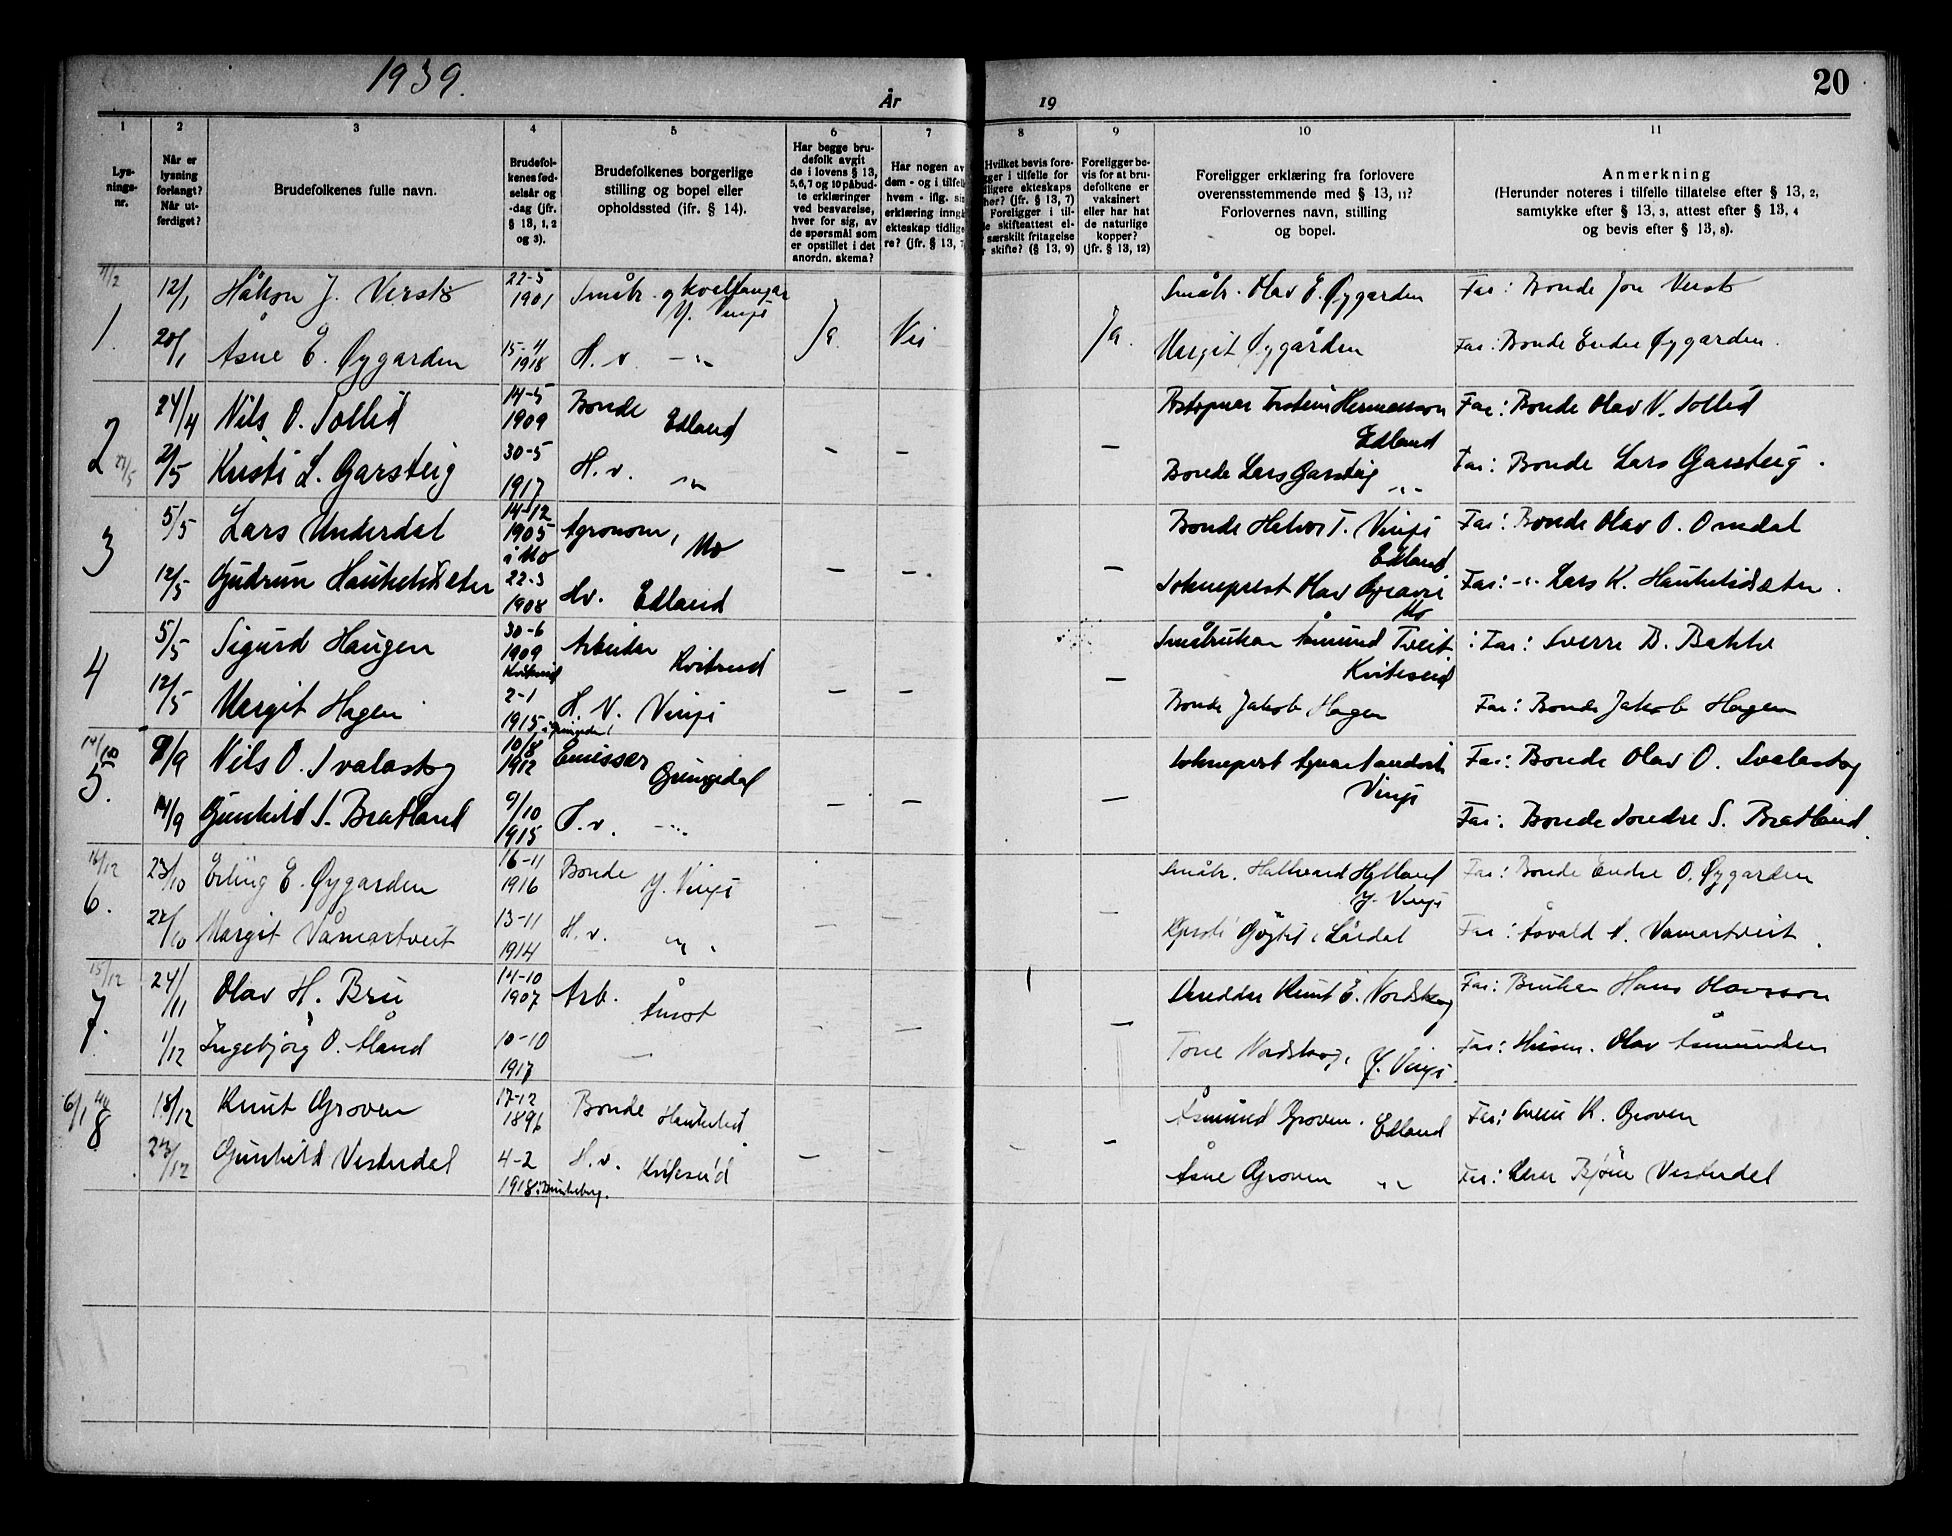 1939.
År
19
20
1
2
3
4
5
6
7
8
9
10
11
Lys-
nings-
nr.
Når er
lysning
forlangt?
Når ut-
ferdiget?
Brudefolkenes fulle navn.
Brudefol-
kenes fød-
selsår og
-dag (jfr.
§ 13, 1, 2
og 3).
Brudefolkenes borgerlige
stilling og bopel eller
opholdssted (ifr. § 14).
Har begge bru-
defolk avgit
de i lovens § 13,
5,6,7 og 10 påbud-
te erklæringer
ved besvarelse,
hver for sig, av
de spørsmål som
er opstillet i det
anordn. skema?
Har nogen av
dem - og i tilfelle
hvem - iflg. sin
erklæring inngå
ekteskap tidlige
re? (jfr. § 13, 7
Hvilket bevis fore-
gger i tilfelle for
dligere ekteskaps
hør? (jfr. § 13, 7)
Foreligger i til-
le skifteattest el-
særskilt fritagelse
r skifte? (§ 13, 9)
Foreligger be-
vis for at bru-
defolkene er
vaksinert
eller har hat
de naturlige
kopper?
(jfr. § 13, 12)
Foreligger erklæring fra forlovere
overensstemmende med § 13, 11?
Forlovernes navn, stilling
og bopel.
Anmerkning
(Herunder noteres i tilfelle tillatelse efter § 13, 2,
samtykke efter § 13, 3, attest efter § 13, 4
og bevis efter § 13, 8).
1. 12/1 Håkon J. Verstø 22-5 1901 Småbr. og kvalfangar Y. Vinje Ja Nei Ja. Småbr. Olav E. Øygarden Far: Bonde Jon Verstø
20/1 Åsne E. Øygarden 15-11 1918 H. v. -"- Margit Øygården Far: Bonde Endre Øygarden.
2 24/4 Nils O. Tollid 14-5 1909 Bonde Edland - - - Torstein Hermansson Edland Far: Bonde Olav N. Tollid
27/5 2/5 Kristi L. Garsteig 30-5 1917 H. v. -"- Bonde Lars Garsteig -"- Far: Bonde Lars Garsteig.
3 5/5 Lars Underdal 14-12 1905 i Mo Agronom, Mo - - - Bonde Halvor T. Vinje Edland Far: Bonde Olav O. Omdal
12/5 Gudrun Haukelidsæter 22-3 1908 Hv. Edland Sokneprest Olav Mo Far: -"- Lars K. Haukelidsæter.
4 5/5 Sigurd Haugen 30-6 1909 Arbeidar - - - Småbrukar Åmund Tveit Kviteseid Far: Sverre B. Bakke
12/5 Margit Hagen 2-1 1915 H. V. Vinje Bonde Jakob Hagen Far: Bonde Jakob Hagen
14/10 5. 9/9 Nils O. Svalastog 10/8 1912 Emissær Grungedal - - - Sokneprest Vinje Far: Bonde Olav O. Svalastog
14/9 Gunhild S. Bratland 9/10 1915 H. v. -"- Far: Bonde Sondre S. Bratland.
16/12 6. 23/10 Erling E. Øygarden 16-11 1916 Bonde Y. Vinje - - - Småbr. Hallvard Hylland Y. Vinje Far: Bonde Endre O. Øygarden
27/10 Margit Våmartveit 13-11 1914 H. v. -"- i Lårdal Far: Åsvald N. Vamartveit.
15/12 7. 24/11 Olav H. Bru 14-10 1907 Arb. Åmot - - - Knut E. Nordskog Far: Brukar Hans Olavsson
1/12 Ingebjørg O. Åland 10-10 1917 - Tone Nordskog, Y. Vinje. Far: Husm. Olav Åsmundsen
6/1 40 8 18/12 Knut Groven 17-12 1896 Bonde Haukelid - - - - Åsmund Groven. Edland Far: Svein K. Groven
23/12 Gunhild Vesterdal 4-2 1918 i Brunkeberg. H. v. Kviteseid Åsne Groven -"- Far: Bjørn Vesterdal